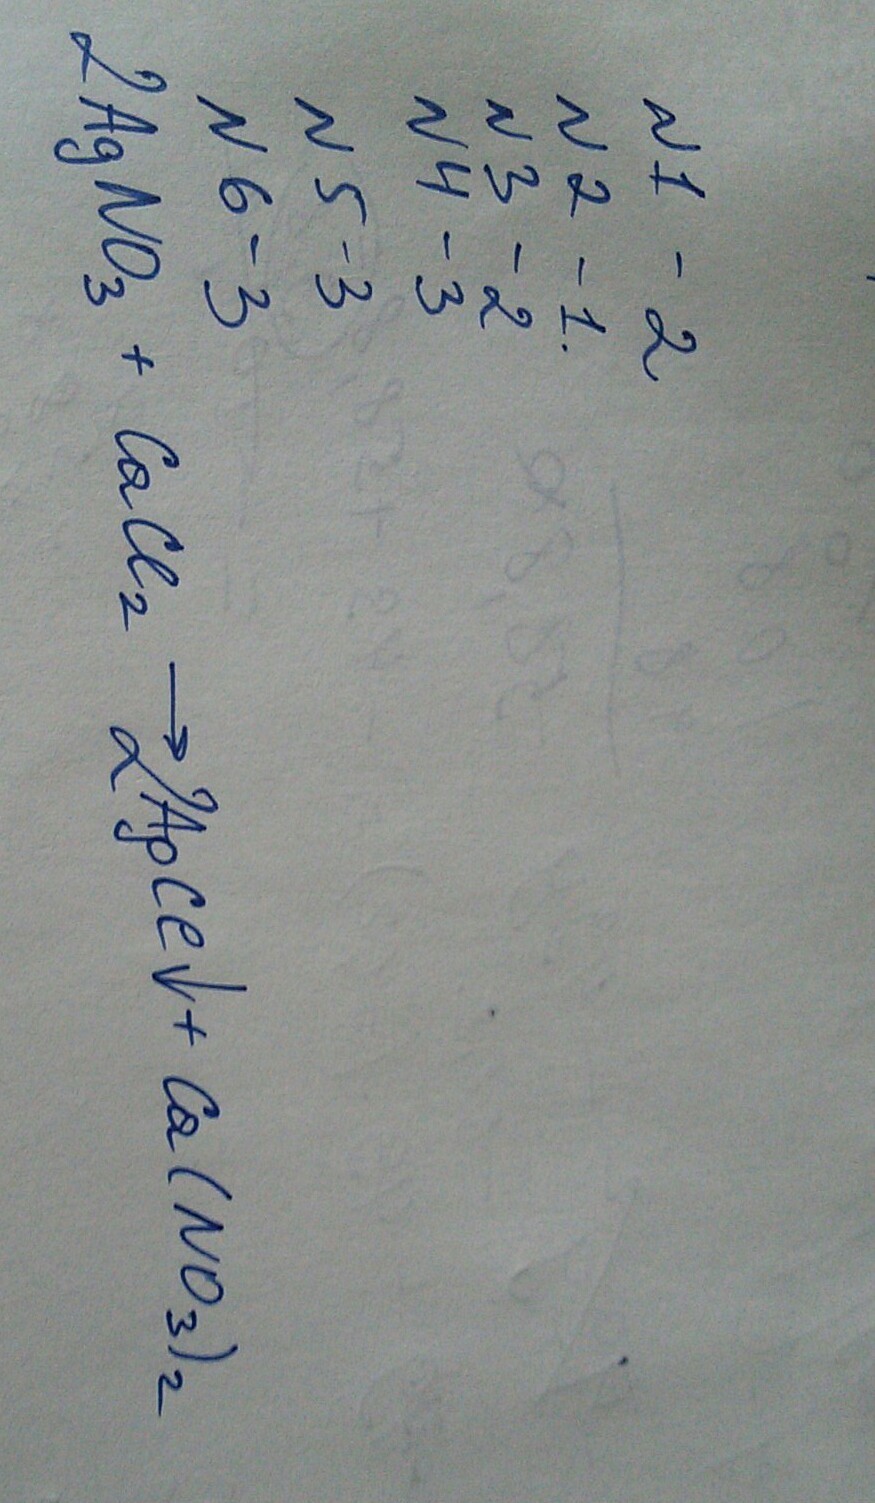 N1 - 2
N2 - 1.
N3 - 2
N4 - 3
N5 - 3
N6 - 3
2AgNO₃ + CaCl₂ → 2AgCl↓ + Ca(NO₃)₂